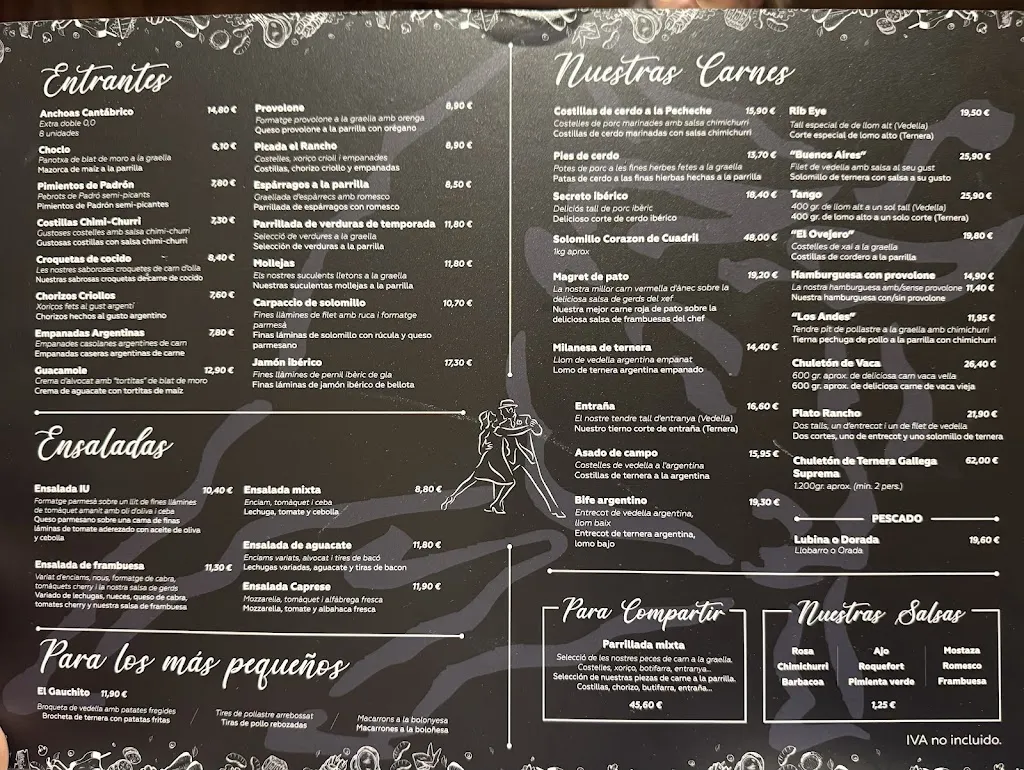 Entrantes
Anchoas Cantábrico 14,80 €
Extra doble 0,0
8 unidades
Choclo 6,10 €
Panotxa de blat de moro a la graella
Mazorca de maíz a la parrilla
Pimientos de Padrón 7,80 €
Pebrots de Padró semi-picants
Pimientos de Padrón semi-picantes
Costillas Chimi-Churri 7,30 €
Gustoses costelles amb salsa chimi-churri
Gustosas costillas con salsa chimi-churri
Croquetas de cocido 8,40 €
Les nostres saboroses croquetes de carn d'olla
Nuestras sabrosas croquetas de carne de cocido
Chorizos Criollos 7,60 €
Xoriços fets al gust argentí
Chorizos hechos al gusto argentino
Empanadas Argentinas 7,80 €
Empanades casolanes argentines de carn
Empanadas caseras argentinas de carne
Guacamole 12,90 €
Crema d'alvocat amb "tortitas" de blat de moro
Crema de aguacate con tortitas de maíz
Provolone 8,90 €
Formatge provolone a la graella amb orenga
Queso provolone a la parrilla con orégano
Picada el Rancho 8,90 €
Costelles, xoriço crioll i empanades
Costillas, chorizo criollo y empanadas
Espárragos a la parrilla 8,50 €
Graellada d'espàrrecs amb romesco
Parrillada de espárragos con romesco
Parrillada de verduras de temporada 11,80 €
Selecció de verdures a la graella
Selección de verduras a la parrilla
Mollejas 11,80 €
Els nostres suculents lletons a la graella
Nuestras suculentas mollejas a la parrilla
Carpaccio de solomillo 10,70 €
Fines llàmines de filet amb ruca i formatge
parmesà
Finas láminas de solomillo con rúcula y queso
parmesano
Jamón ibérico 17,30 €
Fines llàmines de pernil ibèric de gla
Finas láminas de jamón ibérico de bellota
Ensaladas
Ensalada IU 10,40 €
Formatge parmesà sobre un llit de fines llàmines
de tomàquet amanit amb oli d'oliva i ceba
Queso parmesano sobre una cama de finas
láminas de tomate aderezado con aceite de oliva
y cebolla
Ensalada de frambuesa 11,30 €
Variat d'enciams, nous, formatge de cabra,
tomàquets cherry i la nostra salsa de gerds
Variado de lechugas, nueces, queso de cabra,
tomates cherry y nuestra salsa de frambuesa
Ensalada mixta 8,80 €
Enciam, tomàquet i ceba
Lechuga, tomate y cebolla
Ensalada de aguacate 11,80 €
Enciams variats, alvocat i tires de bacó
Lechugas variadas, aguacate y tiras de bacon
Ensalada Caprese 11,90 €
Mozzarella, tomàquet i alfàbrega fresca
Mozzarella, tomate y albahaca fresca
Para los más pequeños
El Gauchito 11,90 €
Broqueta de vedella amb patates fregides
Brocheta de ternera con patatas fritas
/ Tires de pollastre arrebossat
Tiras de pollo rebozadas
/ Macarrons a la bolonyesa
Macarrones a la boloñesa
Nuestras Carnes
Costillas de cerdo a la Pecheche 15,90 €
Costelles de porc marinades amb salsa chimichurri
Costillas de cerdo marinadas con salsa chimichurri
Pies de cerdo 13,70 €
Potes de porc a les fines herbes fetes a la graella
Patas de cerdo a las finas hierbas hechas a la parrilla
Secreto ibérico 18,40 €
Deliciós tall de porc ibèric
Delicioso corte de cerdo ibérico
Solomillo Corazon de Cuadril 48,00 €
1kg aprox
Magret de pato 19,20 €
La nostra millor carn vermella d'ànec sobre la
deliciosa salsa de gerds del xef
Nuestra mejor carne roja de pato sobre la
deliciosa salsa de frambuesas del chef
Milanesa de ternera 14,40 €
Llom de vedella argentina empanat
Lomo de ternera argentina empanado
Entraña 16,60 €
El nostre tendre tall d'entranya (Vedella)
Nuestro tierno corte de entraña (Ternera)
Asado de campo 15,95 €
Costelles de vedella a l'argentina
Costillas de ternera a la argentina
Bife argentino 19,30 €
Entrecot de vedella argentina,
llom baix
Entrecot de ternera argentina,
lomo bajo
Rib Eye 19,50 €
Tall especial de de llom alt (Vedella)
Corte especial de lomo alto (Ternera)
"Buenos Aires" 25,90 €
Filet de vedella amb salsa al seu gust
Solomillo de ternera con salsa a su gusto
Tango 25,90 €
400 gr. de llom alt a un sol tall (Vedella)
400 gr. de lomo alto a un solo corte (Ternera)
"El Ovejero" 19,80 €
Costelles de xai a la graella
Costillas de cordero a la parrilla
Hamburguesa con provolone 14,90 €
La nostra hamburguesa amb/sense provolone 11,40 €
Nuestra hamburguesa con/sin provolone
"Los Andes" 11,95 €
Tendre pit de pollastre a la graella amb chimichurri
Tierna pechuga de pollo a la parrilla con chimichurri
Chuletón de Vaca 26,40 €
600 gr. aprox. de deliciosa carn vaca vella
600 gr. aprox. de deliciosa carne de vaca vieja
Plato Rancho 21,90 €
Dos talls, un d'entrecot i un de filet de vedella
Dos cortes, uno de entrecot y uno solomillo de ternera
Chuletón de Ternera Gallega 62,00 €
Suprema
1.200gr. aprox. (min. 2 pers.)
PESCADO
Lubina o Dorada 19,60 €
Llobarro o Orada
Para Compartir
Parrillada mixta
Selecció de les nostres peces de carn a la graella.
Costelles, xoriço, botifarra, entranya...
Selección de nuestras piezas de carne a la parrilla.
Costillas, chorizo, butifarra, entraña...
45,60 €
Nuestras Salsas
Rosa Ajo Mostaza
Chimichurri Roquefort Romesco
Barbacoa Pimienta verde Frambuesa
1,25 €
IVA no incluido.